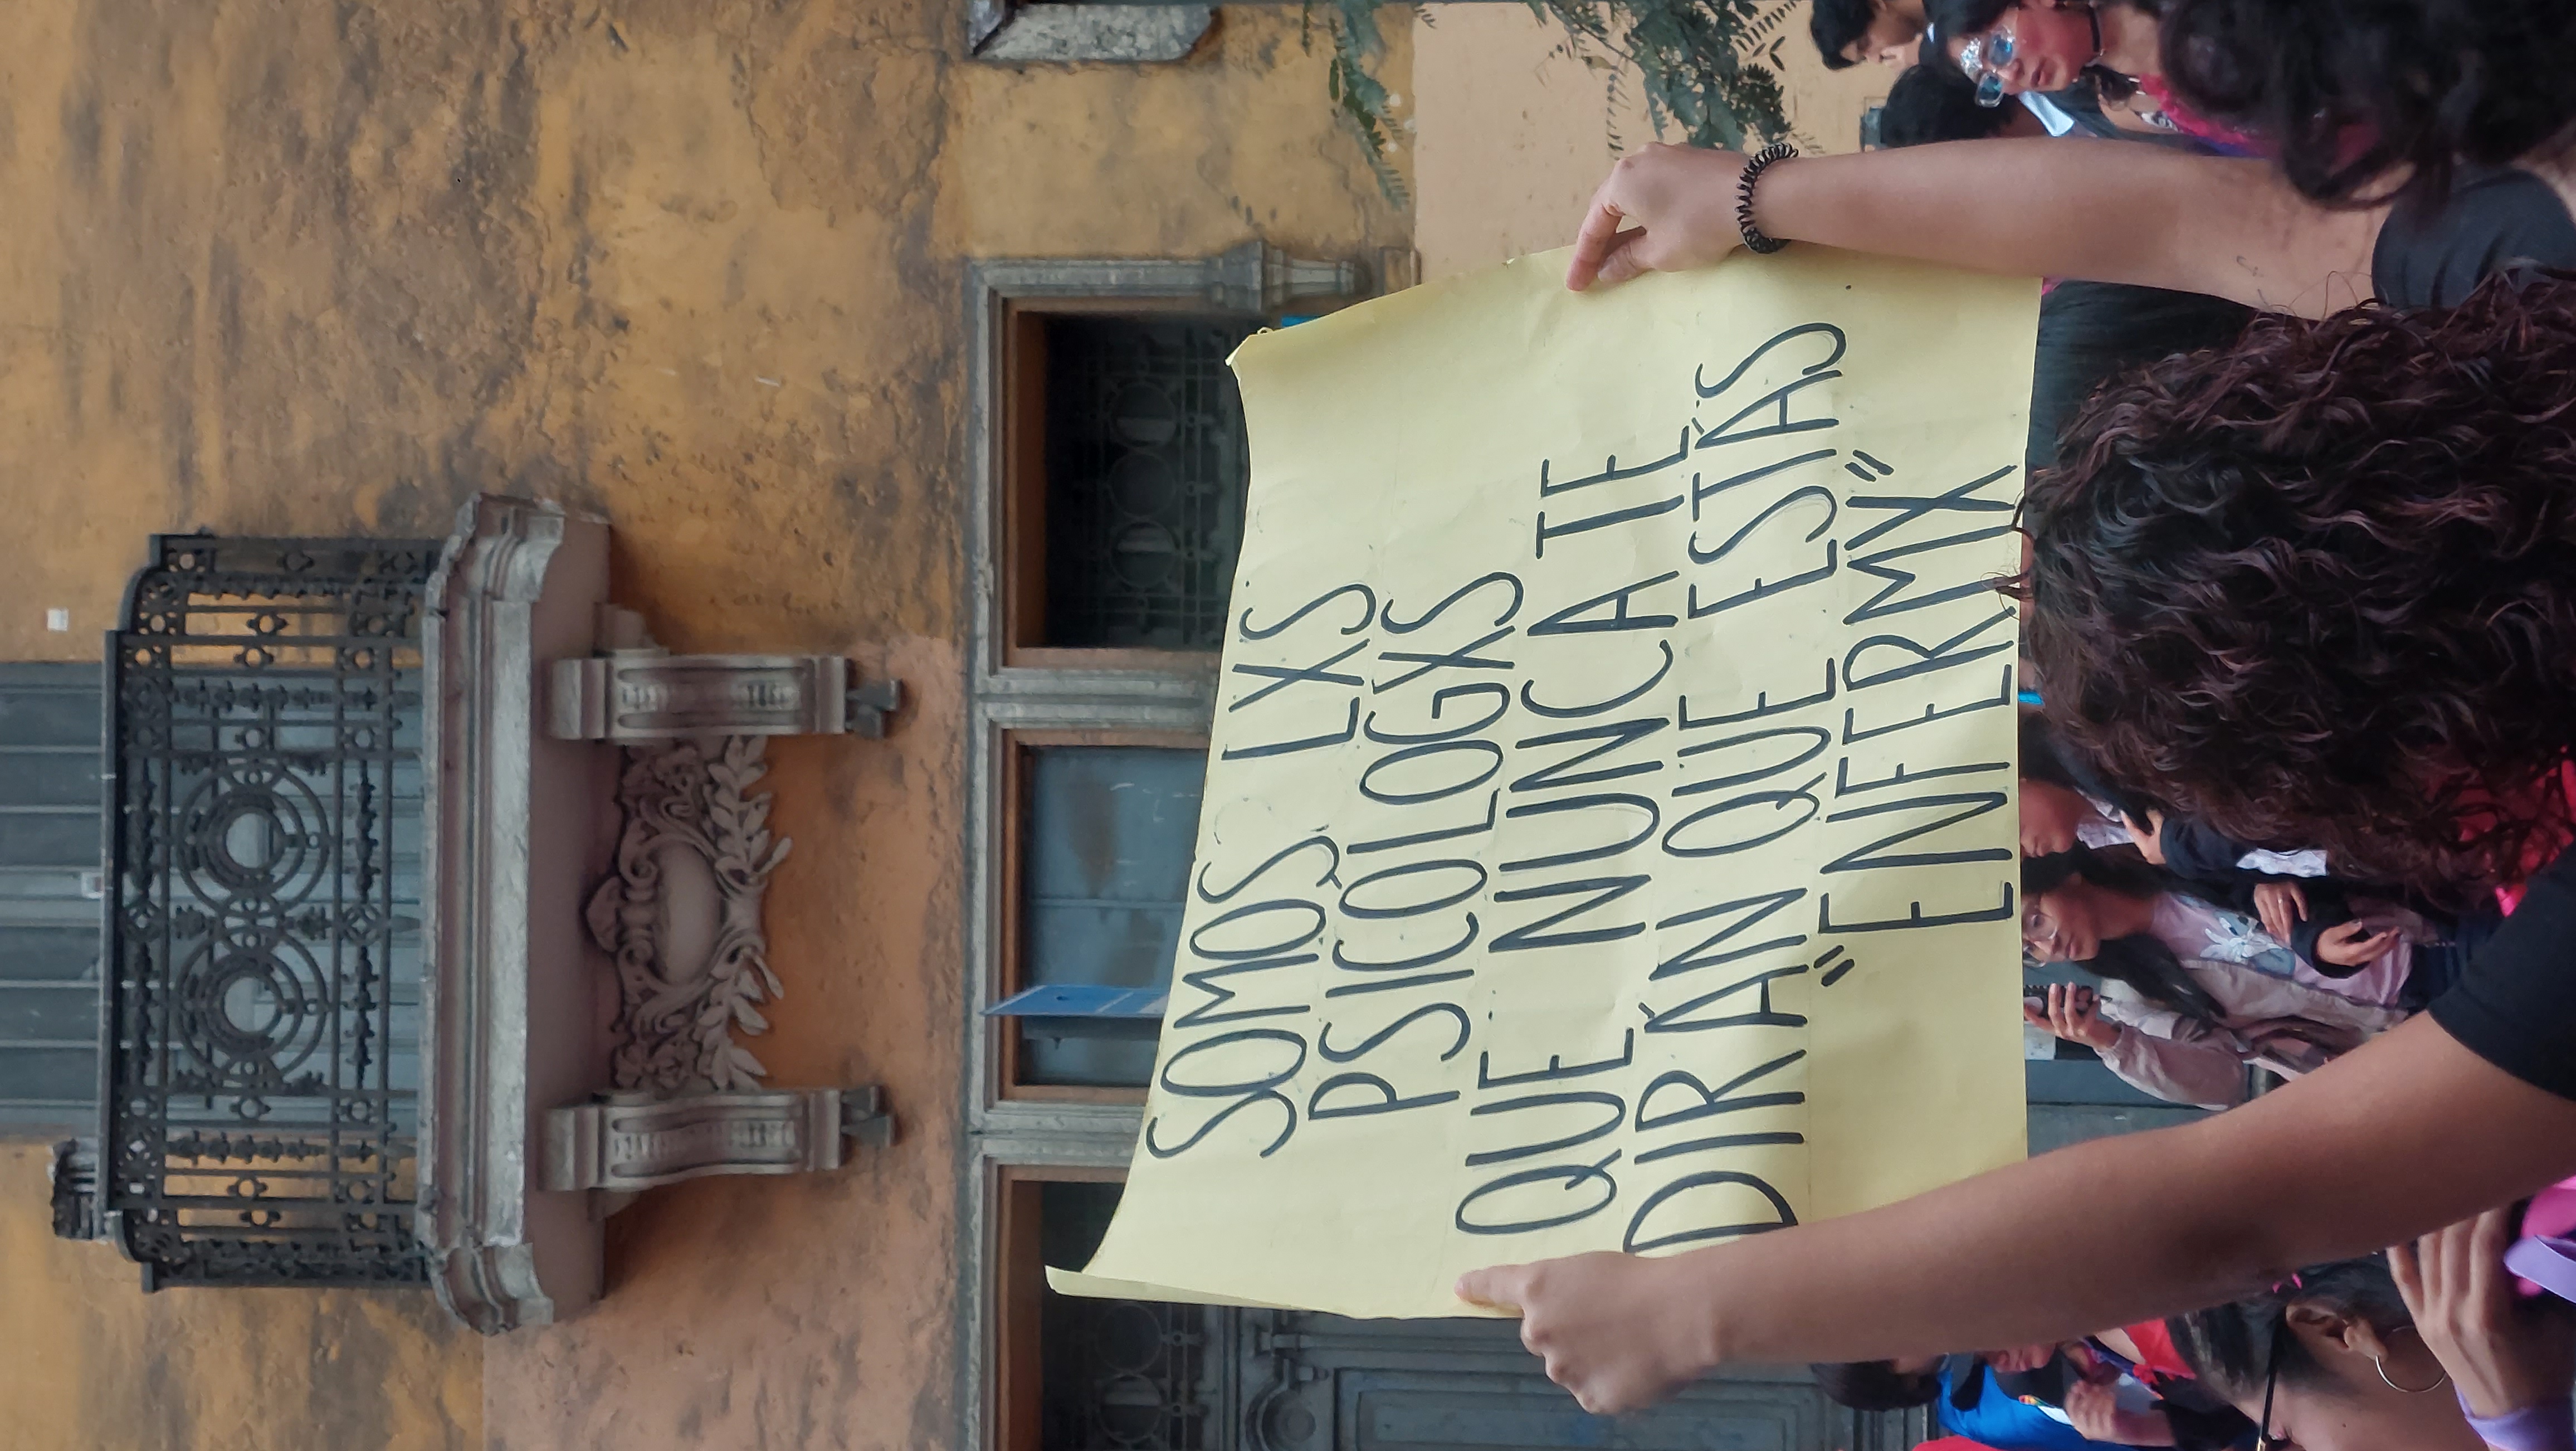 SOMOS LXS
PSICOLOGXS
QUE NUNCA TE
DIRÁN QUE ESTÁS
"ENFERMX"